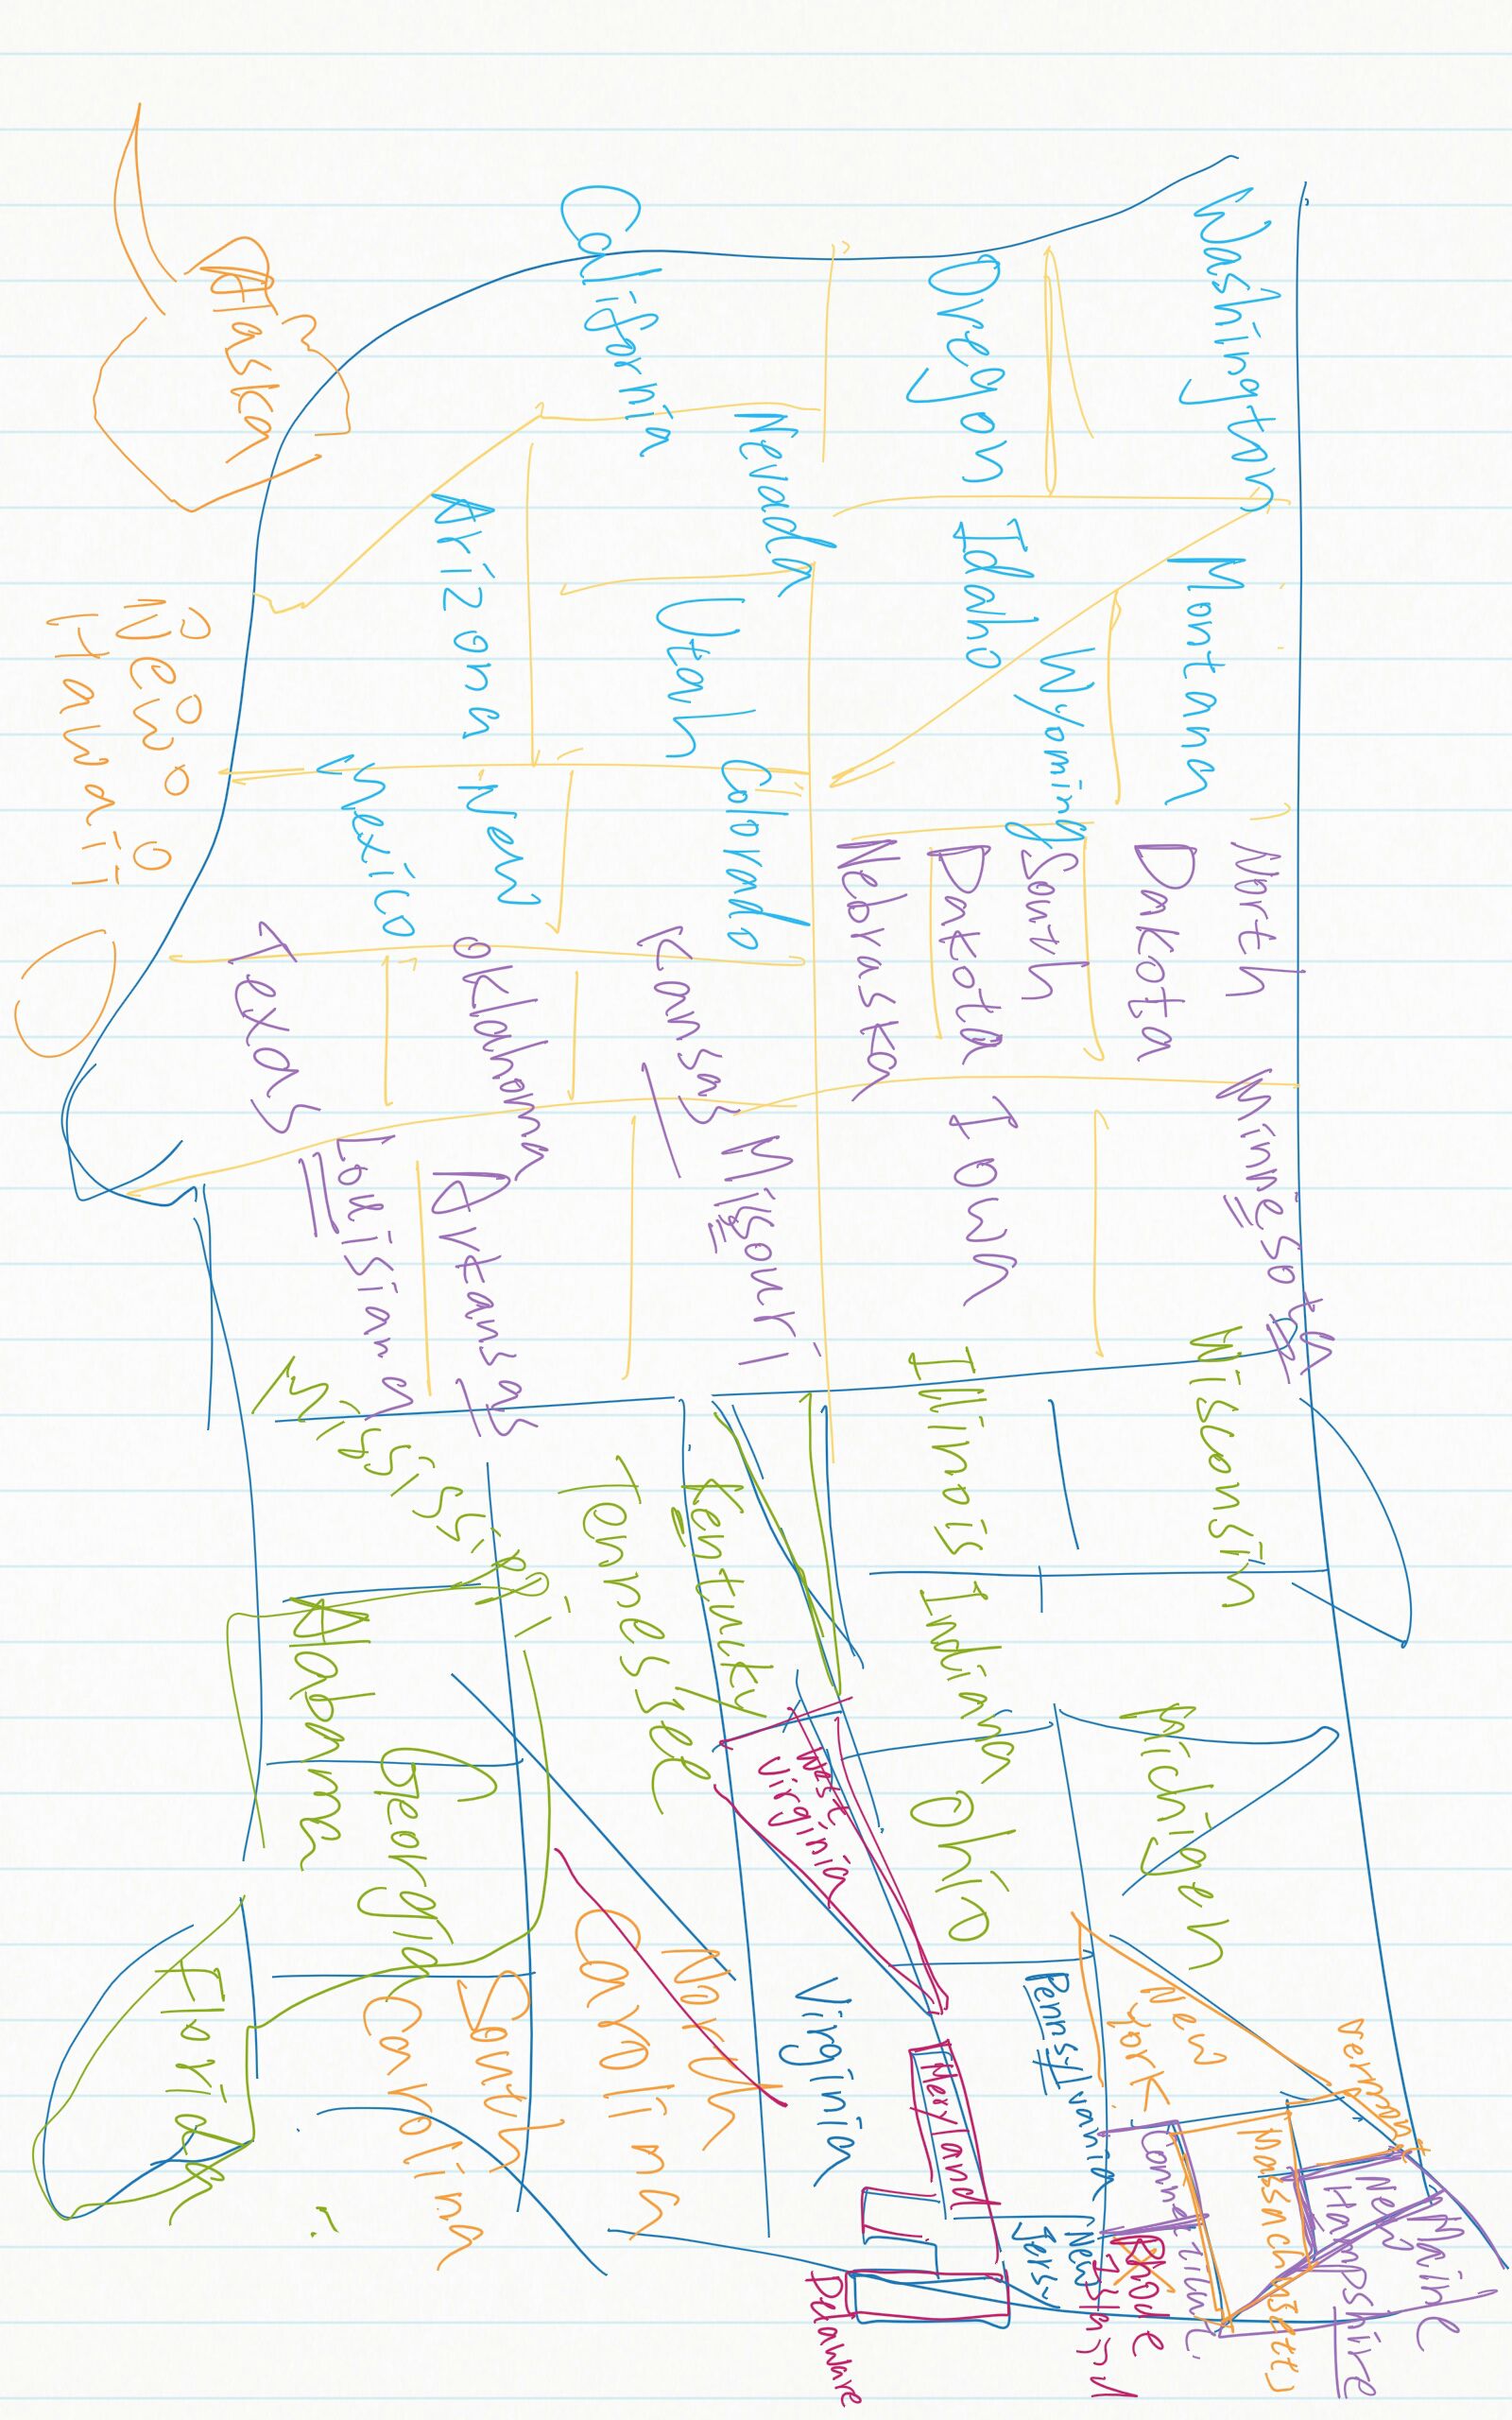 Washington
Oregon
California
Nevada
Idaho
Montana
Wyoming
Utah
Arizona
Colorado
New
Mexico
Alaska
New
Hawaii
North
Dakota
South
Dakota
Nebraska
Kansas
Oklahoma
Texas
Minnesota
Iowa
Missouri
Arkansas
Louisiana
Wisconsin
Illinois
Indiana
Michigen
Ohio
Kentucky
Tennessee
Mississippi
Alabama
Georgia
Florida
West
Virginia
Virginia
North
Carolina
South
Carolina
Pennsylvania
Maryland
Delaware
New
Jersy
New
York
Vermont
Massachusetts
Rhode
Island
New
Hampshire
Maine